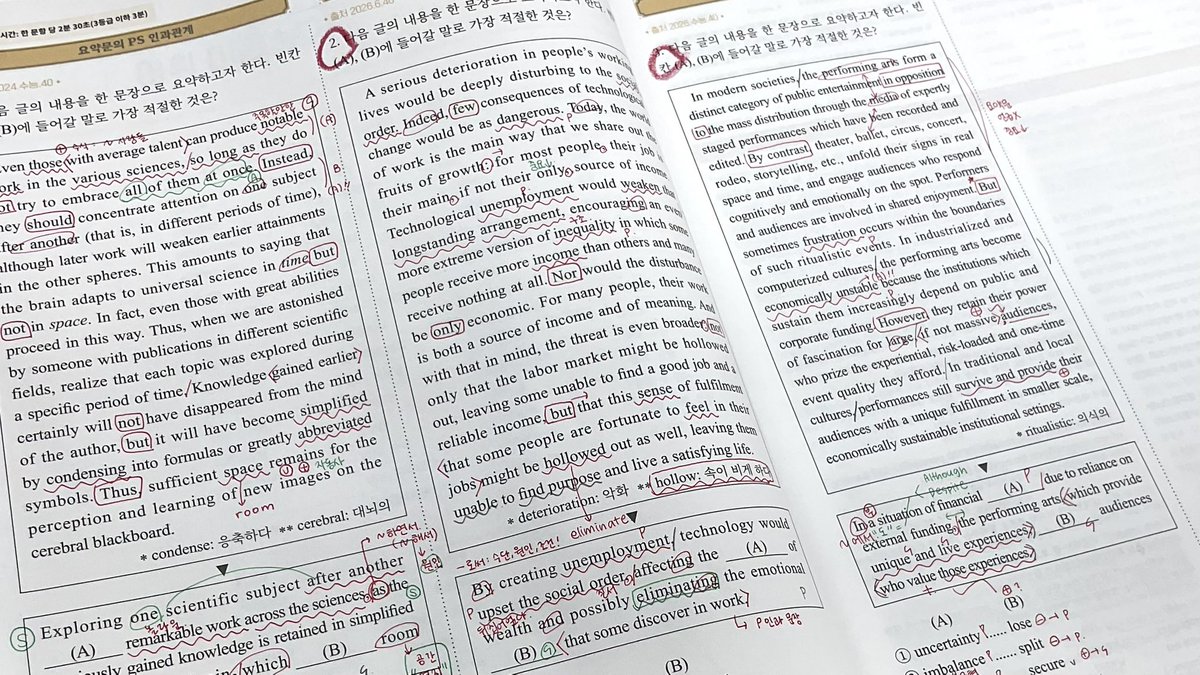 시간: 한 문항 당 2분 30초(3등급 이하 3분)
요약문의 PS 인과관계
2024 수능.40
음 글의 내용을 한 문장으로 요약하고자 한다. 빈칸
(B)에 들어갈 말로 가장 적절한 것은?
ven those with average talent can produce notable
ork in the various sciences, so long as they do
ot try to embrace all of them at once. Instead,
they should concentrate attention on one subject
after another (that is, in different periods of time),
although later work will weaken earlier attainments
in the other spheres. This amounts to saying that
the brain adapts to universal science in time but
not in space. In fact, even those with great abilities
proceed in this way. Thus, when we are astonished
by someone with publications in different scientific
fields, realize that each topic was explored during
a specific period of time. Knowledge gained earlier
certainly will not have disappeared from the mind
of the author, but it will have become simplified
by condensing into formulas or greatly abbreviated
symbols. Thus, sufficient space remains for the
perception and learning of new images on the
cerebral blackboard.
room
* condense: 응축하다 ** cerebral: 대뇌의
Exploring one scientific subject after another
(A) remarkable work across the sciences, as the
ously gained knowledge is retained in simplified
which (B) room
공간
출처 2026.6.40
2. 다음 글의 내용을 한 문장으로 요약하고자 한다. 빈칸
(A), (B)에 들어갈 말로 가장 적절한 것은?
A serious deterioration in people's working
lives would be deeply disturbing to the social
order. Indeed, few consequences of technological
change would be as dangerous. Today, the world
of work is the main way that we share out the
fruits of growth: for most people, their job is
their main, if not their only, source of income.
Technological unemployment would weaken that
longstanding arrangement, encouraging an even
more extreme version of inequality in which some
people receive more income than others and many
receive nothing at all. Nor would the disturbance
be only economic. For many people, their work
is both a source of income and of meaning. And
with that in mind, the threat is even broader: not
only that the labor market might be hollowed
out, leaving some unable to find a good job and a
reliable income, but that this sense of fulfilment
that some people are fortunate to feel in their
jobs might be hollowed out as well, leaving them
unable to find purpose and live a satisfying life.
* deterioration: 악화 ** hollow: 속이 비게 하다
eliminate
By creating unemployment, technology would
upset the social order, affecting the (A) of
wealth and possibly eliminating the emotional
(B) that some discover in work.
(B)
출처 2026 수능.40
다음 글의 내용을 한 문장으로 요약하고자 한다. 빈
칸 (A), (B)에 들어갈 말로 가장 적절한 것은?
In modern societies, the performing arts form a
distinct category of public entertainment in opposition
to the mass distribution through the media of expertly
staged performances which have been recorded and
edited. By contrast, theater, ballet, circus, concert,
rodeo, storytelling, etc., unfold their signs in real
space and time, and engage audiences who respond
cognitively and emotionally on the spot. Performers
and audiences are involved in shared enjoyment. But
sometimes frustration occurs within the boundaries
of such ritualistic events. In industrialized and
computerized cultures, the performing arts become
economically unstable because the institutions which
sustain them increasingly depend on public and
corporate funding. However, they retain their power
of fascination for large, if not massive, audiences,
who prize the experiential, risk-loaded and one-time
event quality they afford. In traditional and local
cultures, performances still survive and provide their
audiences with a unique fulfillment in smaller scale,
economically sustainable institutional settings.
* ritualistic: 의식의
Although
Despite
In a situation of financial (A) due to reliance on
external funding, the performing arts, which provide
unique and live experiences, (B) audiences
who value those experiences.
(A) (B)
① uncertainty ...... lose
② imbalance ...... split
secure